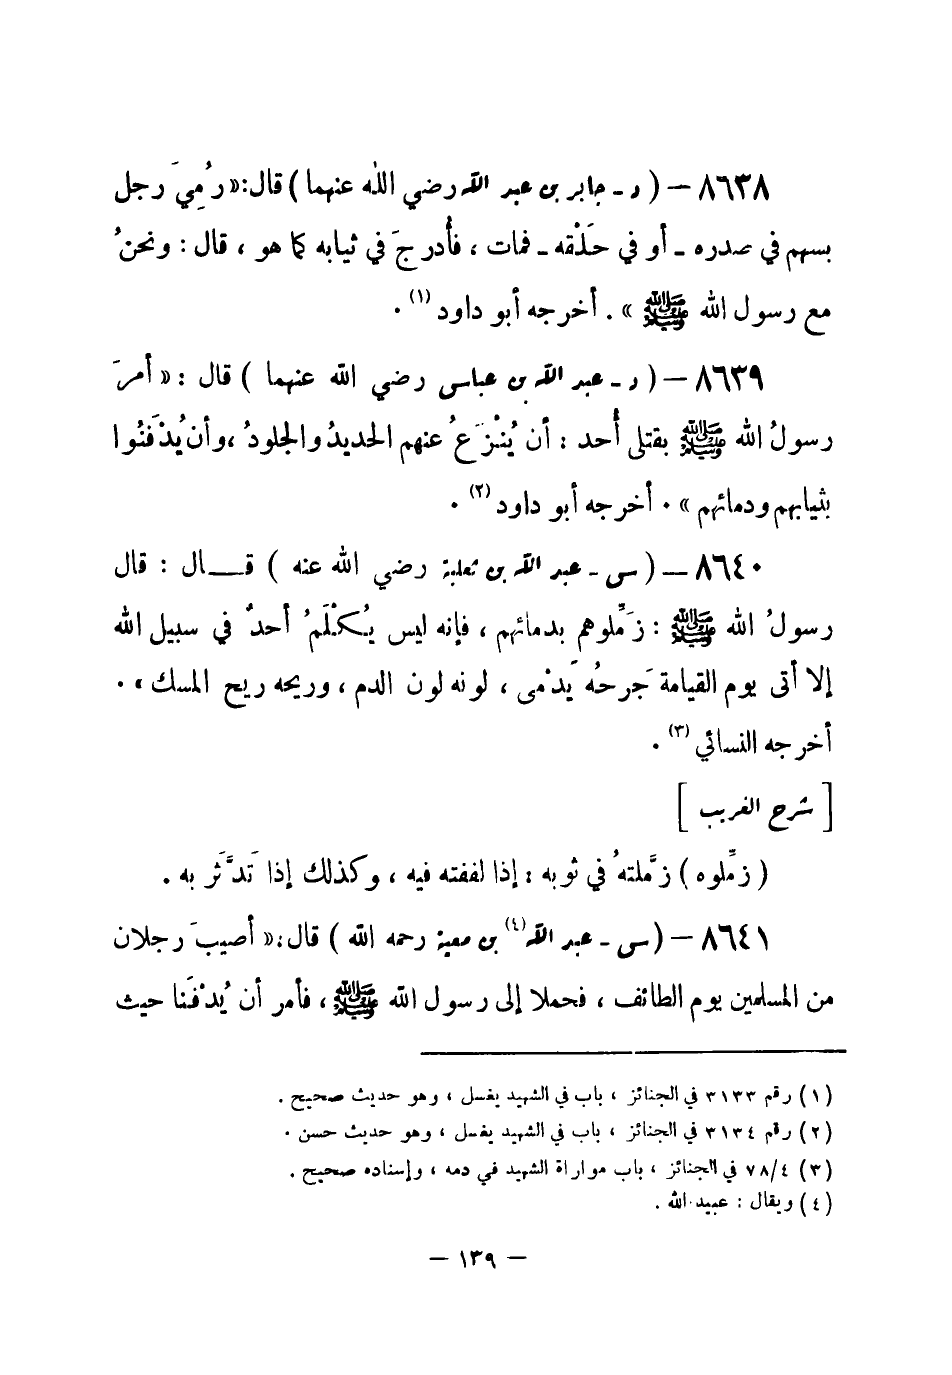 ٨٦٣٨ – ( د - جابر بن عبد الله رضي الله عنهما ) قال : « رُمِيَ رجل
بسهم في صدره - أو في حَلْقه - فمات ، فأُدرجَ في ثيابه كما هو ، قال : ونحنُ
مع رسول الله ﷺ » . أخرجه أبو داود (١) .
٨٦٣٩ – ( د - عبد الله بن عباس رضي الله عنهما ) قال : « أمرَ
رسولُ الله ﷺ بقتلى أُحد : أن يُنْزَعُ عنهم الحديدُ والجلودُ ، وأن يُدْفَنُوا
بثيابهم ودمائهم » . أخرجه أبو داود (٢) .
٨٦٤٠ – ( س - عبد الله بن ثعلبة رضي الله عنه ) قـــال : قال
رسولُ الله ﷺ : زَمِّلوهم بدمائهم ، فإنه ليس يُكْلَمُ أحدٌ في سبيل الله
إلا أتى يوم القيامة جَرحُهُ يَدْمى ، لونه لون الدم ، وريحه ريح المسك » .
أخرجه النسائي (٣) .
[ شرح الغريب ]
( زمِّلوه ) زمَّلتهُ في ثوبه : إذا لففته فيه ، وكذلك إذا تَدَثَّرَ به .
٨٦٤١ – ( س - عبد الله (٤) بن معية رحمه الله ) قال : « أصيبَ رجلان
من المسلمين يوم الطائف ، فحملا إلى رسول الله ﷺ ، فأمر أن يُدْفَنا حيث
(١) رقم ٣١٣٣ في الجنائز ، باب في الشهيد يغسل ، وهو حديث صحيح .
(٢) رقم ٣١٣٤ في الجنائز ، باب في الشهيد يغسل ، وهو حديث حسن .
(٣) ٧٨/٤ في الجنائز ، باب مواراة الشهيد في دمه ، وإسناده صحيح .
(٤) ويقال : عبيد الله .
– ١٣٩ –